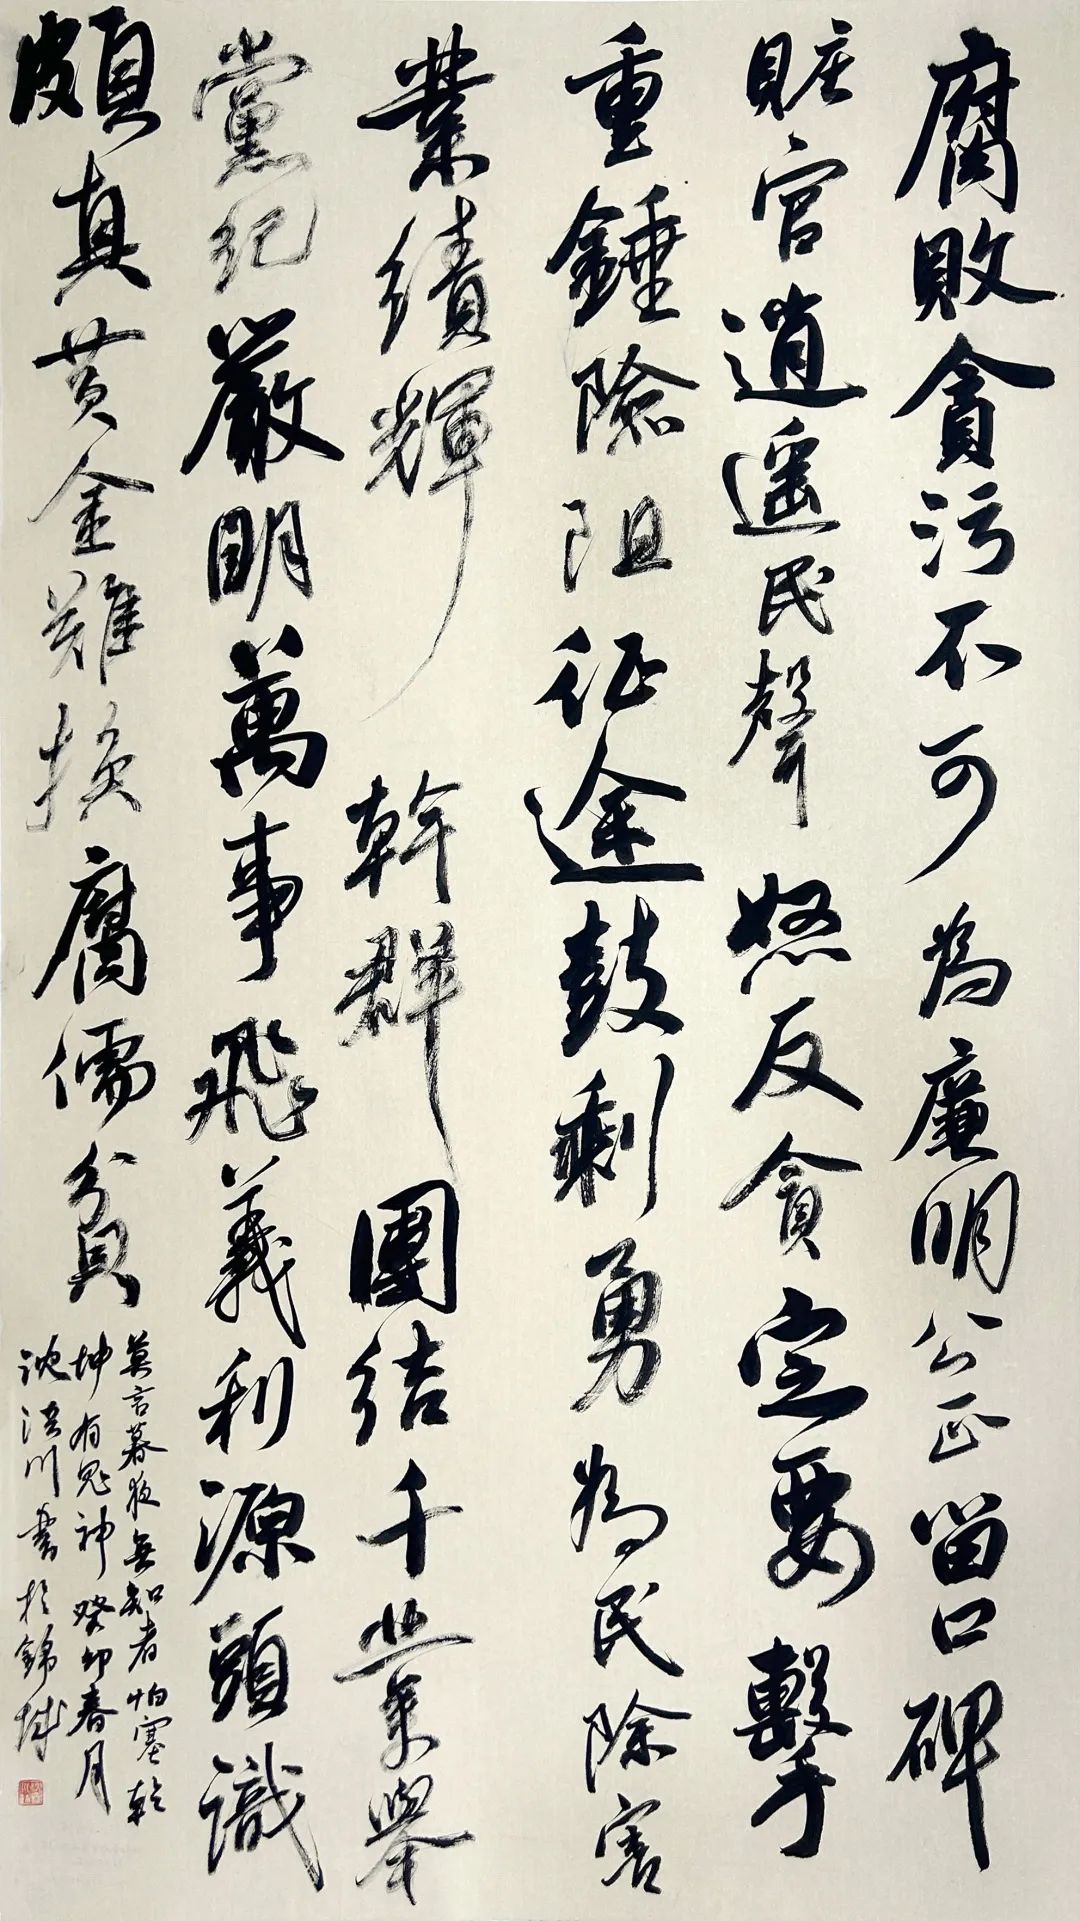 腐敗貪污不可為廉明公正留口碑
賍官逍遥民聲怒反貪定要擊
重錘險阻征途鼓剩勇為民除害
業績輝幹群團結千業舉
黨紀嚴明萬事飛義利源頭識
頗真黄金難換腐儒貧
莫言暮夜無知者怕塞乾
坤有鬼神癸卯春月
沈洪川書於錦城